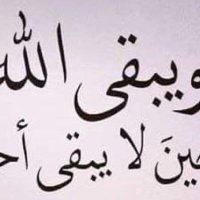 ويبقى الله
حينَ لا يبقى